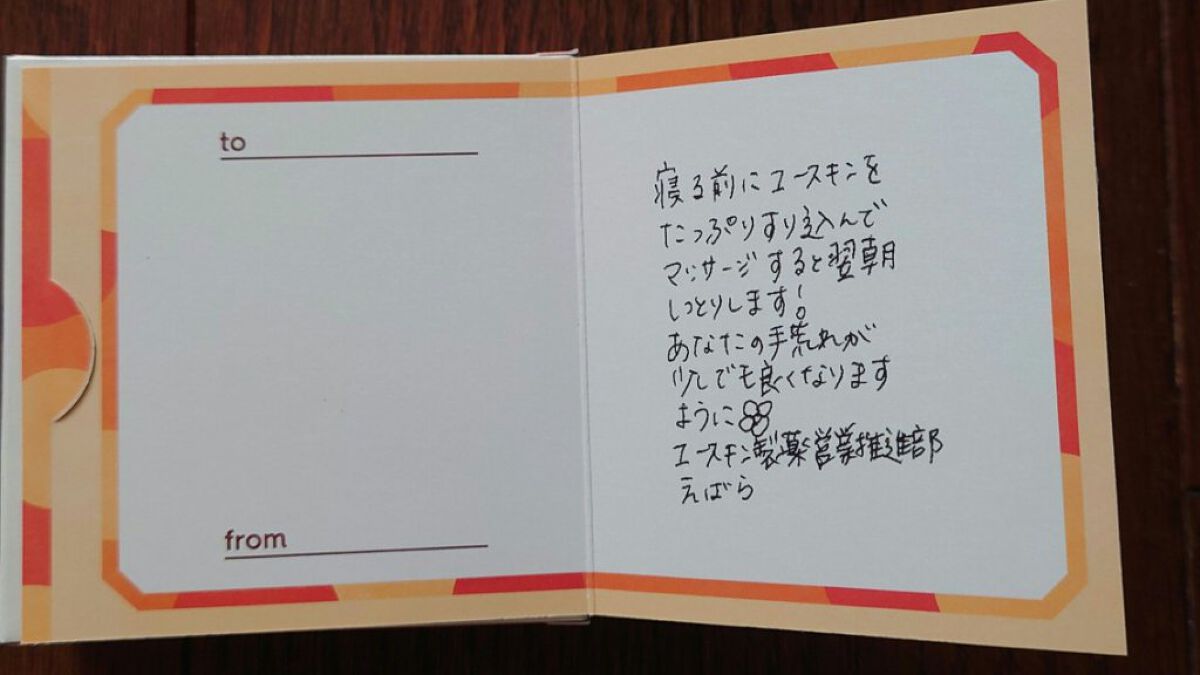 to
from
寝る前にユースキンを
たっぷりすり込んで
マッサージすると翌朝
しっとりします!
あなたの手荒れが
少しでも良くなります
ように
ユースキン製薬営業推進部
えばら